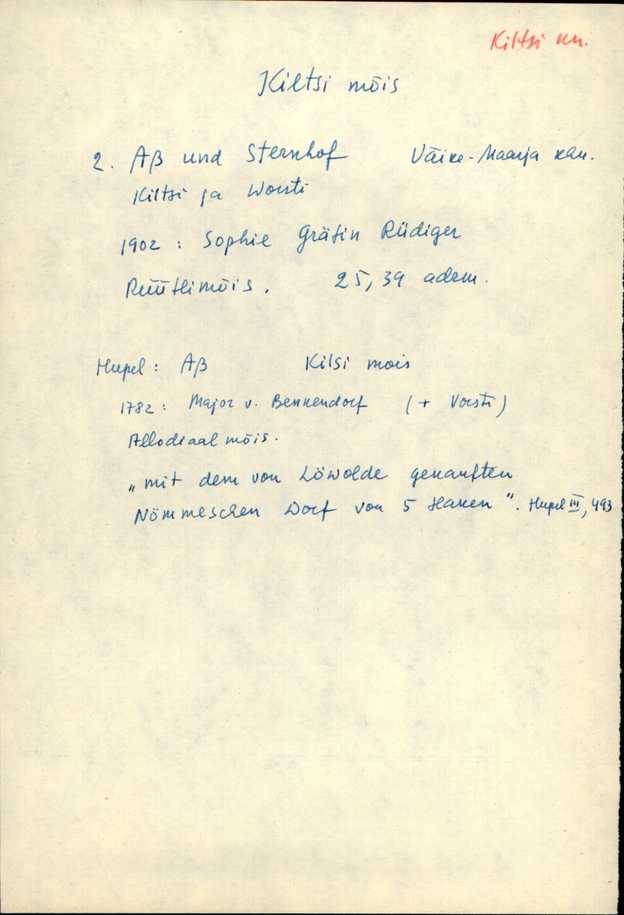 Kiltsi kn.
Kiltsi mõis
2. Aß und Sternhof Väike-Maarja khn.
Kiltsi ja Worsti
1902 : Sophie Gräfin Rüdiger
Rüütlimõis. 25,39 adrm.
Hupel : Aß Kilsi mois
1782 : Major v. Benkendorf (+ Vorsti)
Allodiaal mõis.
„mit dem von Löwolde gekauften
Nömmeschen Dorf von 5 Haken". Hupel III, 493